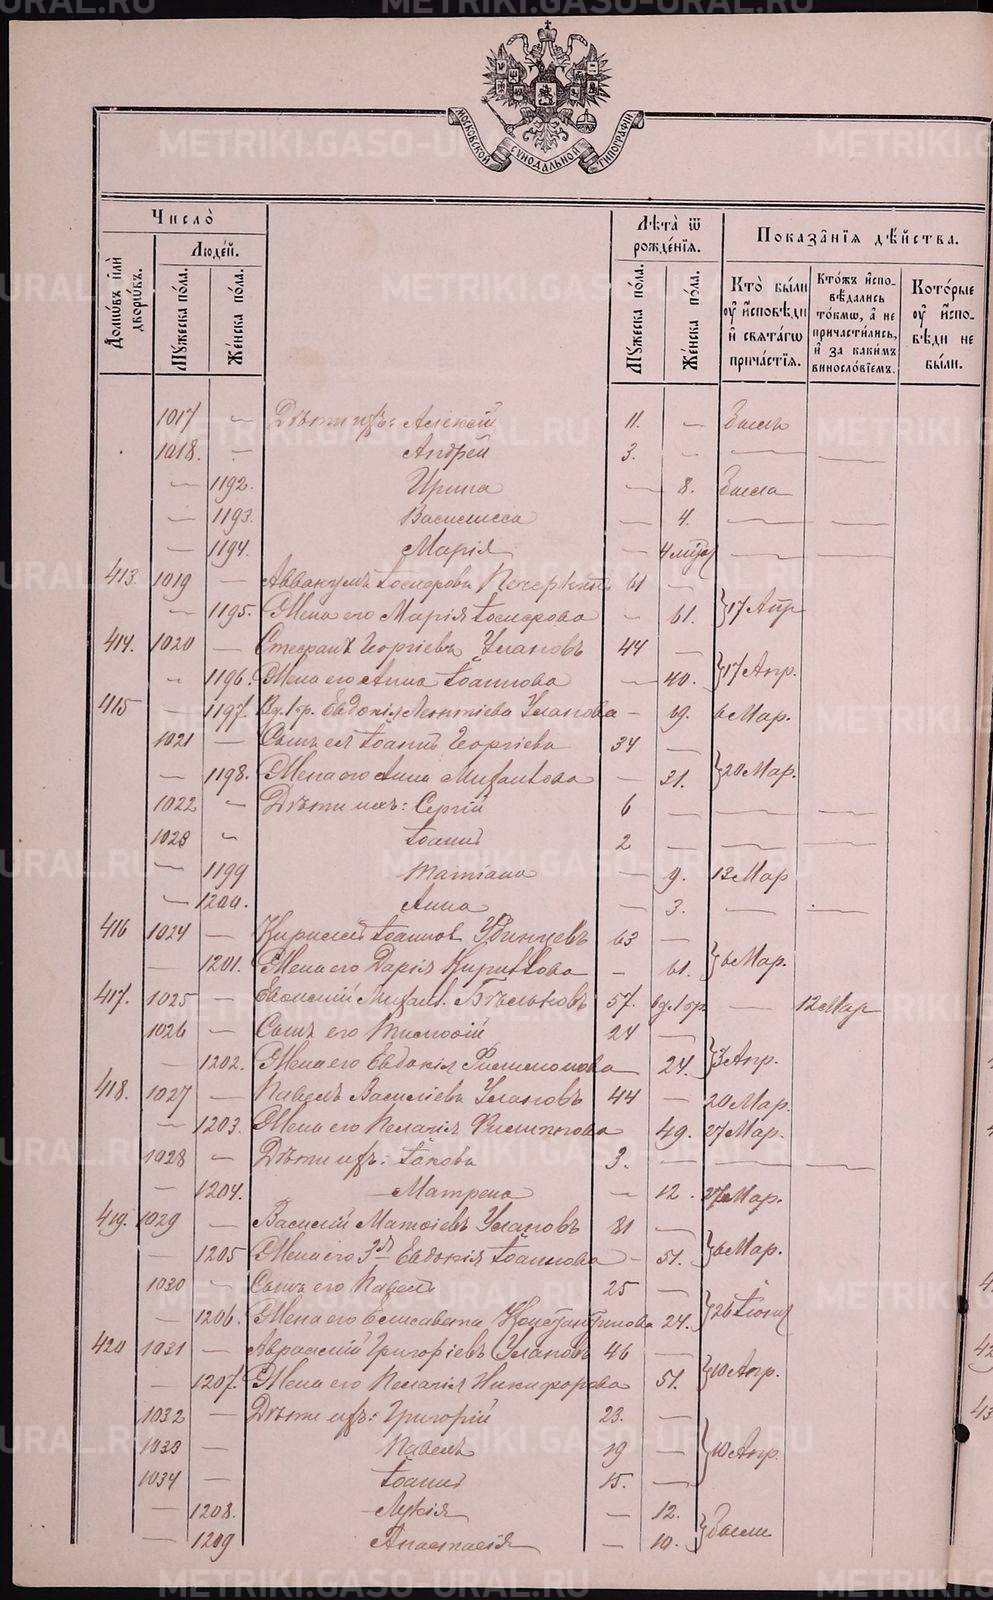 МОСКОВСКОЙ СѴНОДАЛЬНОЙ ТИПОГРАФІИ
Число̀
Людей.
Домѡвъ илѝ дворѡвъ.
Мꙋжеска по́ла.
Же́нска по́ла.
Лѣ́та ѿ рожде́нїѧ.
Мꙋжеска по́ла.
Же́нска по́ла.
Показа́нїѧ дѣ́йства.
Кто̀ бы́ли оу҆ и҆сповѣ́ди и҆ свѧта́гѡ прича́стїѧ.
Кто́жъ и҆сповѣ́дались то́кмѡ, а҆ не причасти́лись, и҆ за каки́мъ винослѡ́вїемъ.
Кото́рые оу҆ и҆спо́вѣди не бы́ли.
1017 — Дѣти ихъ: Алексій 11. — Былъ
1018. — Андрей 3. — — —
— 1192. Ирина — 8. Была
— 1193. Василисса — 4. — —
— 1194. Марія — 4 мѣс — —
413. 1019 — Аввакумъ 61 —
— 1195. Жена его Марія — 61. } 17 Апр
414. 1020 — Стефанъ Георгіевъ Улановъ 44 —
— 1196. Жена его Анна Іоаннова — 40. } 17 Апр.
415 — 1197. Вд. 1 бр. Евдокія Леонтіева Уланова — 69. 6 Мар.
1021 — Сынъ ея Іоаннъ Георгіевъ 34 —
— 1198. Жена его Анна Михаилова — 31. } 20 Мар.
1022 — Дѣти ихъ: Сергій 6 — — —
1023 — Іоаннъ 2 — — —
— 1199 Татіана — 9. 13 Мар
— 1200. Анна — 3. — —
416 1024 — Кириллъ Іоанновъ 63 —
— 1201. Жена его Дарія Кириллова — 61. } 6 Мар.
417. 1025 — Евфимій Михаил. 57. вд. 1 бр — 12 Мар
1026 — Сынъ его Тимофей 24 —
1202. Жена его Евдокія Филимонова 24. } Апр.
418. 1027 — Павелъ Василіевъ Улановъ 44 — 20 Мар.
— 1203. Жена его Пелагія Филиппова — 49. 27 Мар.
1028 — Дѣти ихъ: Іаковъ 3. — — —
— 1204. Матрена — 12. 27 Мар.
419. 1029 — Василій Матѳіевъ Улановъ 81 —
— 1205 Жена его Евдокія Іоаннова — 51. } 6 Мар.
1030 — Сынъ его Павелъ 25 —
— 1206. Жена его Елисавета Константинова 24. } 26
420 1031 — Авраамій Григоріевъ Улановъ 46 —
— 1207. Жена его Пелагія Никифорова 51. } 10 Апр.
1032 — Дѣти ихъ: Григорій 23. —
1033 — Павелъ 19 —
1034 — Іоаннъ 15. — } 10 Апр.
— 1208. Лукія — 12.
— 1209 Анастасія — 10. } Были
METRIKI.GASO-URAL.RU